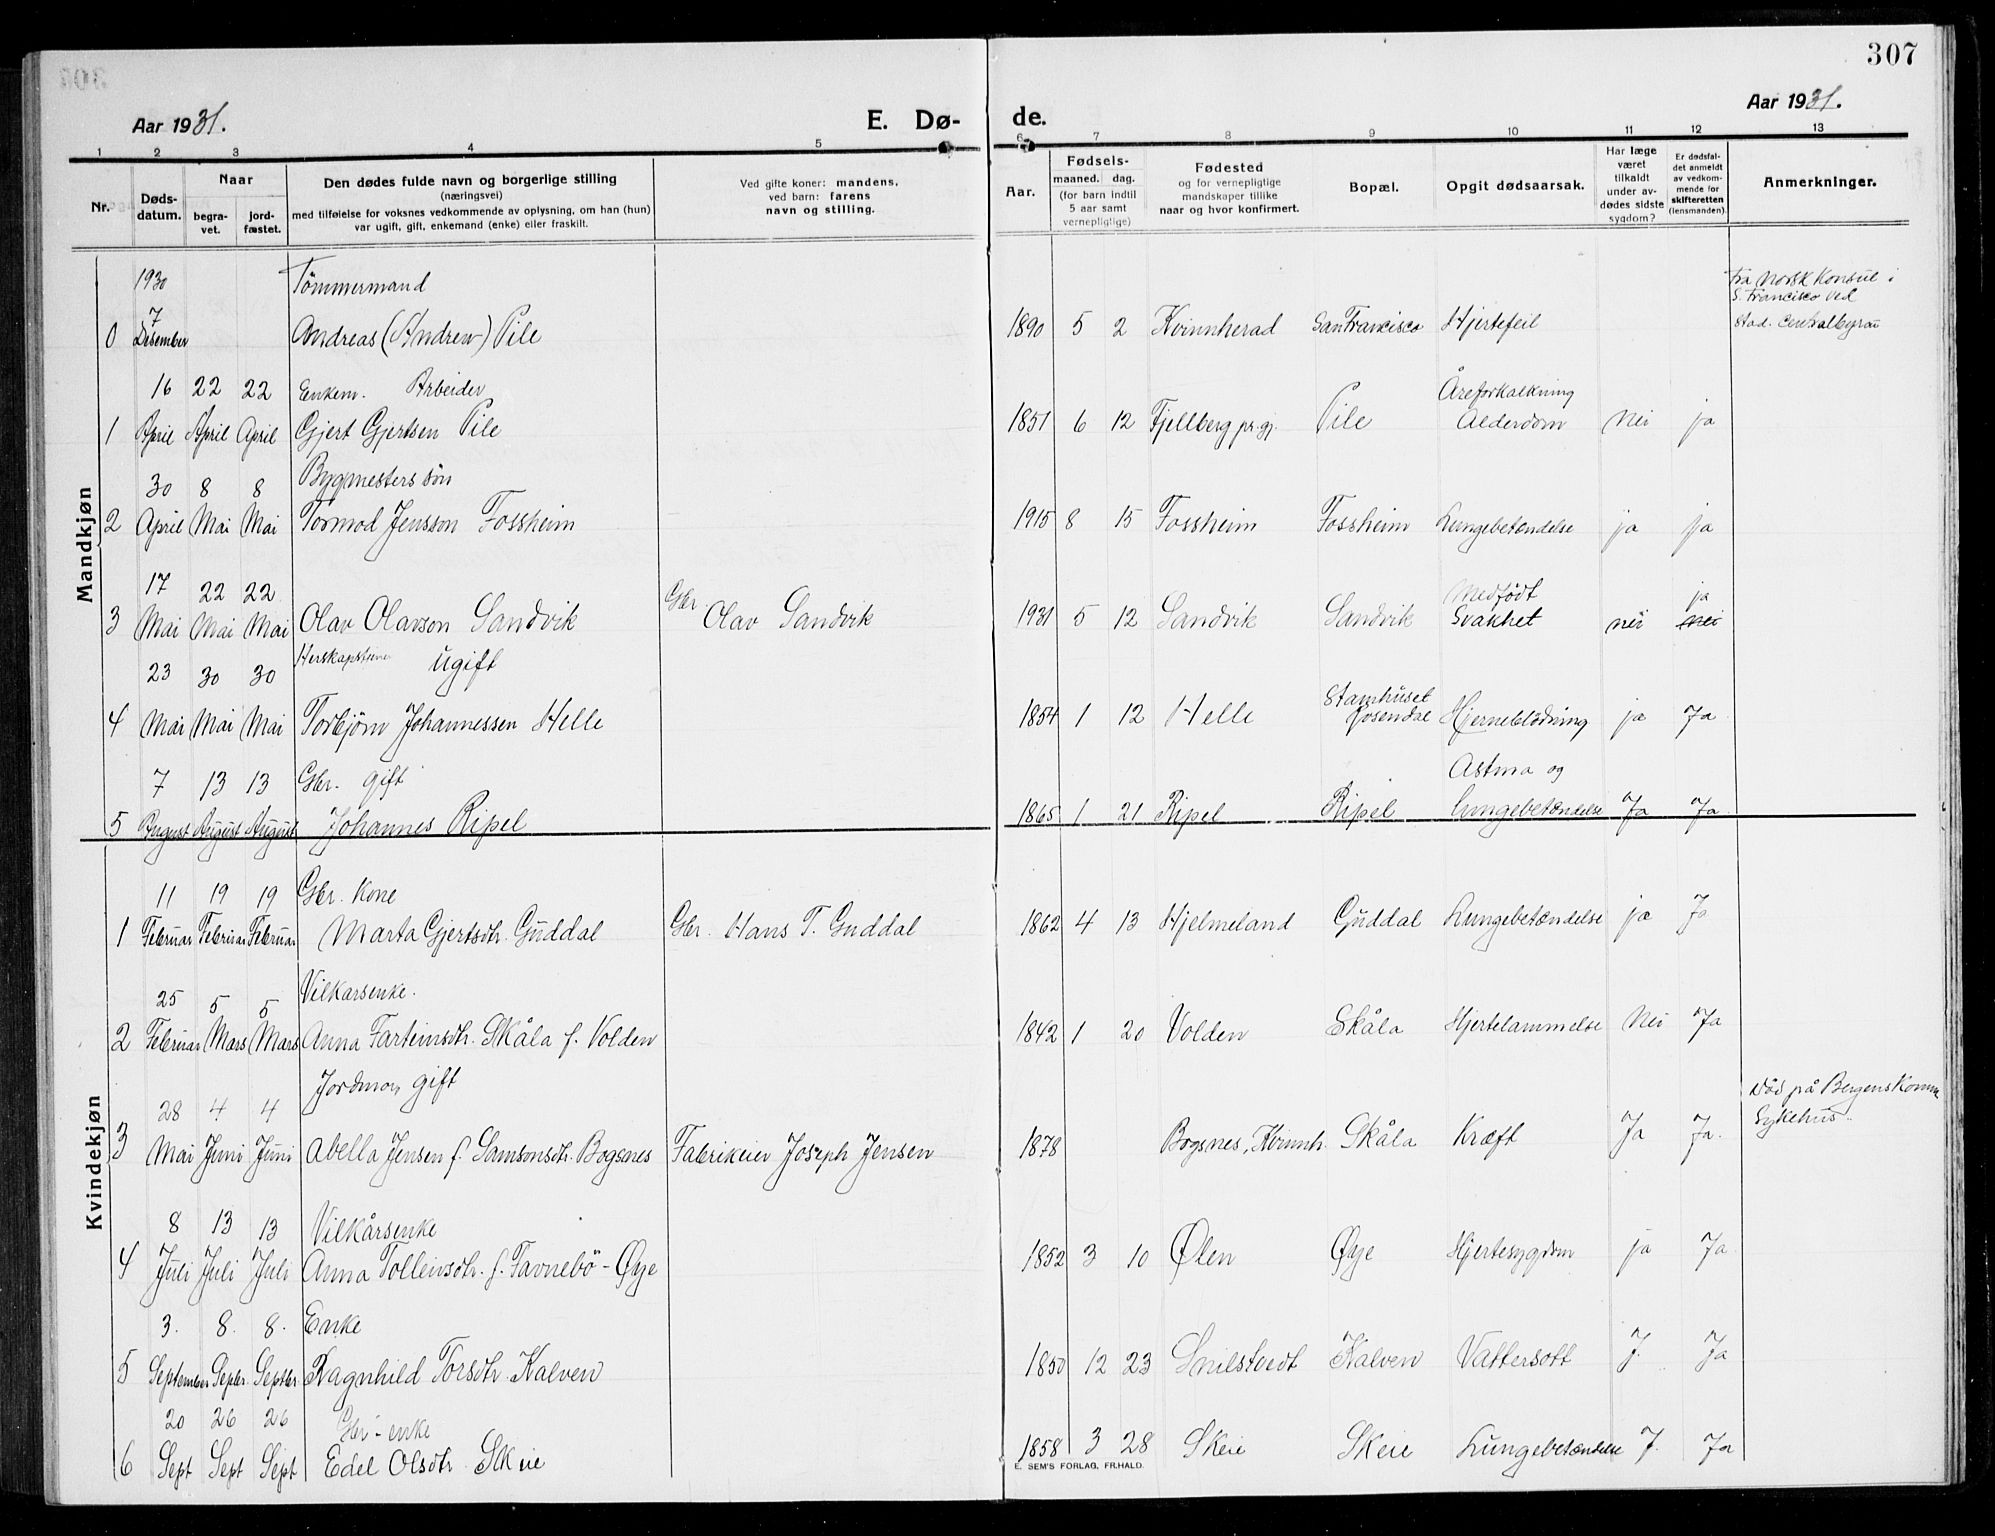 307
Aar 1931.
E. Dø-
de.
Aar 1931.
1 2 3 4 5 6 7 8 9 10 11 12 13
Nr.
Døds-
datum.
Naar
begra-
vet.
jord-
fæstet.
Den dødes fulde navn og borgerlige stilling
(næringsvei)
med tilføielse for voksnes vedkommende av oplysning, om han (hun)
var ugift, gift, enkemand (enke) eller fraskilt.
Ved gifte koner: mandens,
ved barn: farens
navn og stilling.
Aar.
Fødsels-
maaned. dag.
(for barn indtil
5 aar samt
vernepligtige)
Fødested
og for vernepligtige
mandskaper tillike
naar og hvor konfirmert.
Bopæl.
Opgit dødsaarsak.
Har læge
været
tilkaldt
under av-
dødes sidste
sygdom?
Er dødsfal-
det anmeldt
av vedkom-
mende for
skifteretten
(lensmanden).
Anmerkninger.
Mandkjøn
1930 Tømmermand Fra Norsk Konsul i
7 S. Francisco ved
0 Desember Andreas (Andrew) Pile 1890 5 2 Kvinnherad San Francisco Hjertefeil Stad. Centralbyrau
16 22 22 Enkem. Arbeider Åreforkalkning
1 April April April Gjert Gjertsen Pile 1851 6 12 Fjellberg pr.gj. Pile Alderdom Nei ja
30 8 8 Bygmesters søn
2 April Mai Mai Tormod Jensson Fossheim 1915 8 15 Fossheim Fossheim Lungebetændelse ja ja
17 22 22 Gbr Medfødt ja
3 Mai Mai Mai Olav Olavson Sandvik Olav Sandvik 1931 5 12 Sandvik Sandvik Svakhet nei nei
23 30 30 ugift Stamhuset
4 Mai Mai Mai Torbjørn Johannessen Helle 1854 1 12 Helle Rosendal Hjerneblödning ja Ja
7 13 13 Gbr. gift Astma og
5 August August August Johannes Ripel 1865 1 21 Ripel Ripel Lungebetændelse Ja Ja
Kvindekjøn
11 19 19 Gbr. kone
1 Februar Februar Februar Marta Gjertsdtr. Guddal Gbr. Hans T. Guddal 1862 4 13 Hjelmeland Guddal Lungebetændelse ja J
25 5 5 Vilkarsenke.
2 Februar Mars Mars Anna Farteinsdtr. Skåla f. Volden 1842 1 20 Volden Skåla Hjertelammelse Nei Ja
28 4 4 Jordmor, gift Död på Bergens Komm
3 Mai Juni Juni Abella Jensen f. Samsonsdtr. Bogsnes Fabrikeier Joseph Jensen 1878 Bogsnes, Kvinnh. Skåla Kræft Ja Ja. Sykehus.
8 13 13 Vilkårsenke
4 Juli Juli Juli Anna Tolleivsdtr. f. Favnebö - Øye 1852 3 10 Ølen Øye Hjertesygdom ja Ja
3. 8. 8. Enke
5 September Septbr. Septbr. Ragnhild Torsdtr. Kalven 1850 12 23 Snilstveidt Kalven Vattersott J. Ja
20 26 26 Gbr - enke
6 Sept Sept Sept Edel Olsdtr. Skeie 1858 3 28 Skeie Skeie Lungebetændelse J. Ja
E. SEM'S FORLAG, FR.HALD.